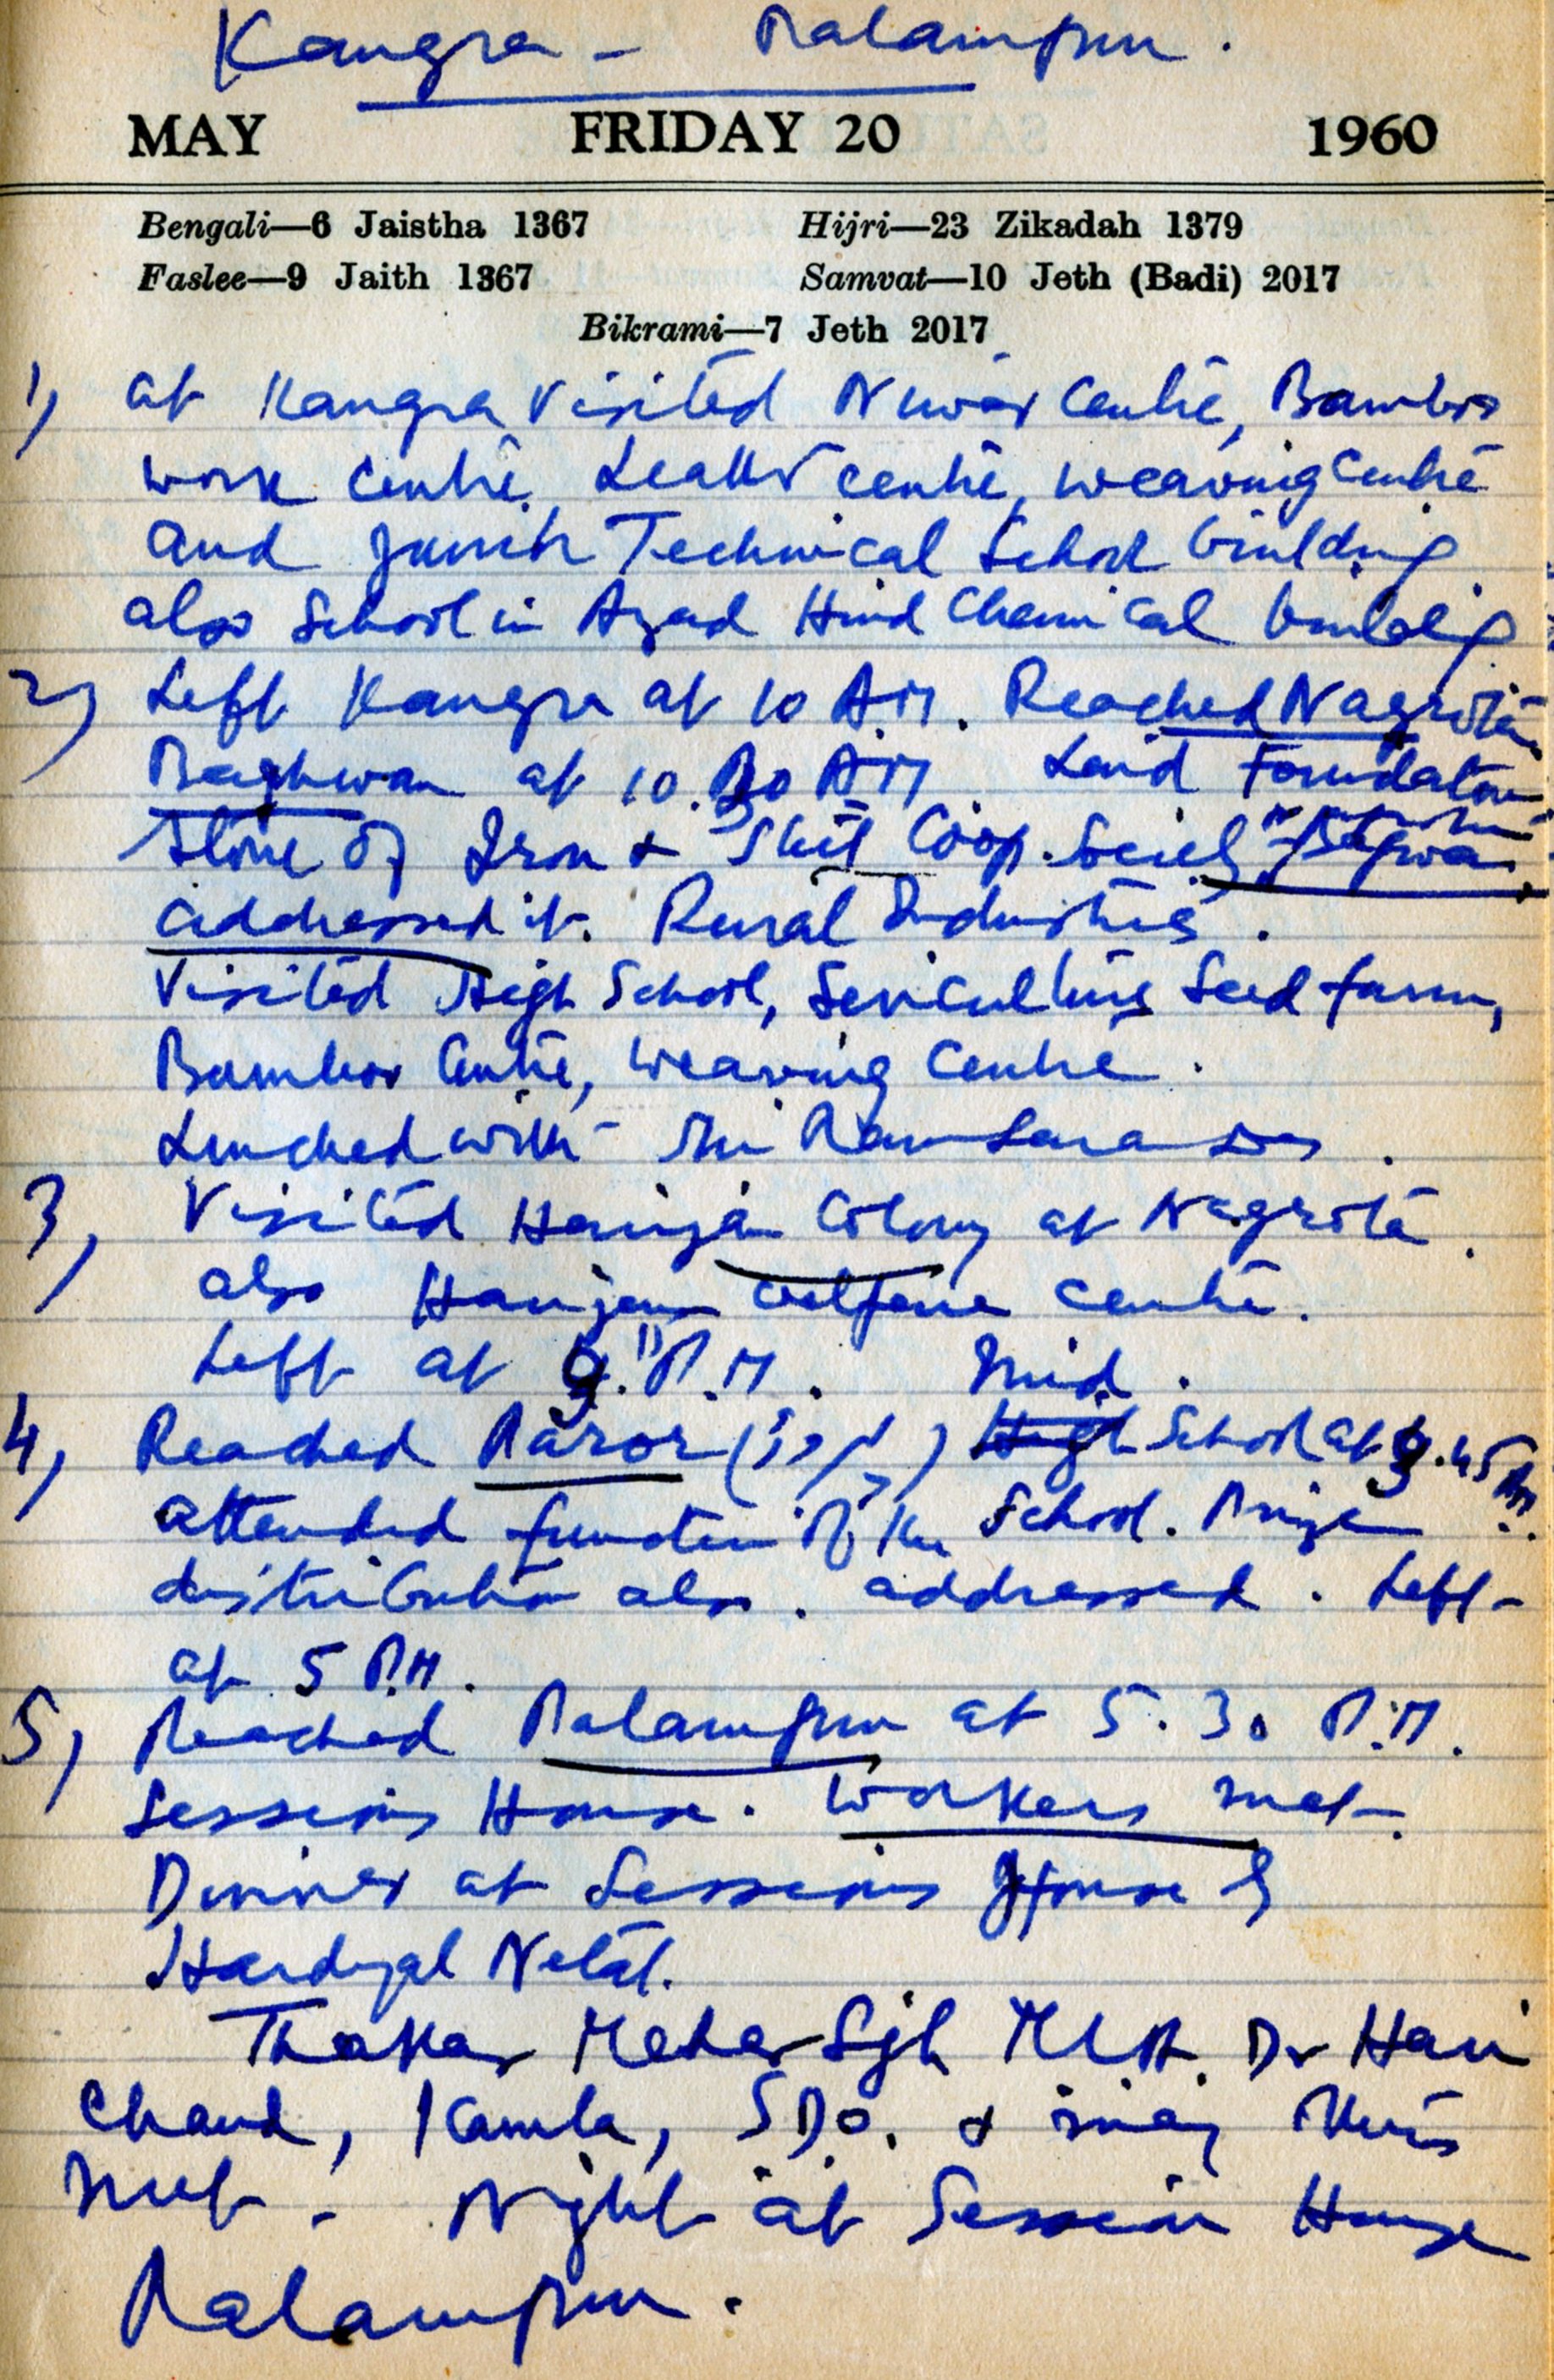 Kangra - Palampur.
MAY FRIDAY 20 1960
Bengali—6 Jaistha 1367 Hijri—23 Zikadah 1379
Faslee—9 Jaith 1367 Samvat—10 Jeth (Badi) 2017
Bikrami—7 Jeth 2017
1) at Kangra visited Niwar Centre, Bamboo
work Centre, Leather centre, weaving centre
and Junior Technical School building
also School in Azad Hind Chemical building
2) Left Kangra at 10 A.M. Reached Nagrota
Baghwan at 10.30 A.M. Laid Foundation
stone of Iron & Steel Coop. Society
addressed it. Rural Industries.
Visited High School, Sericulture Seed farm,
Bamboo Centre, Weaving Centre.
Lunched with Shri Ram Saran Das.
3) Visited Harijan Colony at Nagrota.
also Harijan welfare centre.
Left at 3. P.M. Mid.
4) Reached Paror ( ) High School at 3.45 PM
attended function of the School. Prize
distribution also. addressed. Left
at 5 P.M.
5) Reached Palampur at 5.30 P.M.
Sessions House. Workers met.
Dinner at Sessions House by
Hardyal
Thakar Mehar Sgh MLA. Dr Hari
Chand, Kamla, SDO. & many
met. Night at Session House
Palampur.